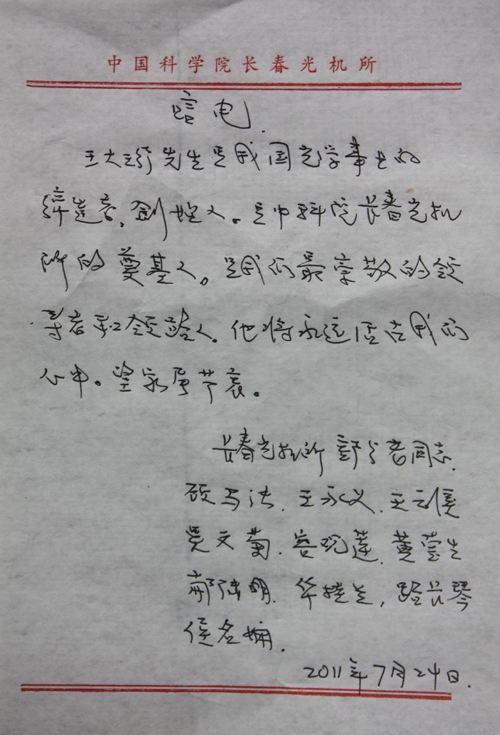 中国科学院长春光机所
唁电
王大珩先生是我国光学事业的
缔造者、创始人。是中科院长春光机
所的奠基人。是我们最崇敬的领
导者和领路人。他将永远活在我们
心中。望家属节哀。
长春光机所 部分老同志
王永义、王
吴文菊、黄莹生
明、路长琴
侯名
2011年7月24日